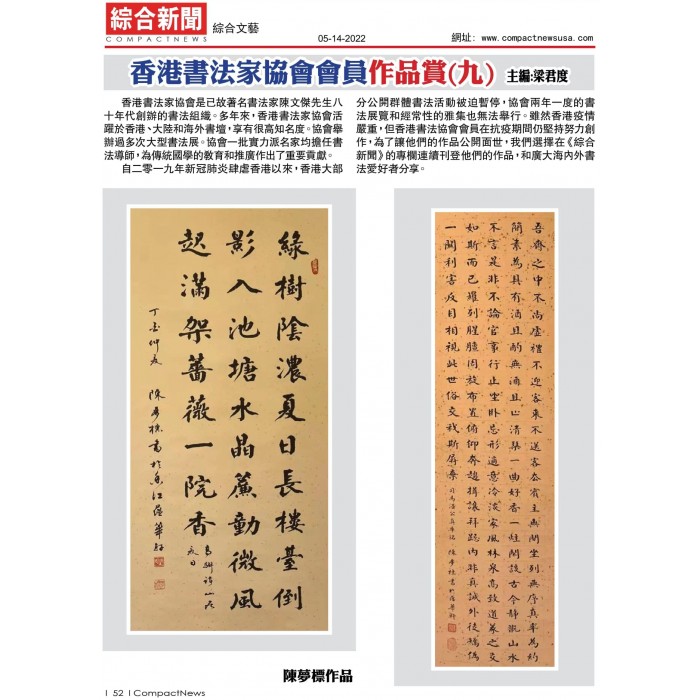 綜合新聞
COMPACTNEWS
綜合文藝
05-14-2022
網址: www.compactnewsusa.com
香港書法家協會會員作品賞(九) 主編:梁君度
香港書法家協會是已故著名書法家陳文傑先生八
十年代創辦的書法組織。多年來，香港書法家協會活
躍於香港、大陸和海外書壇，享有很高知名度。協會舉
辦過多次大型書法展。協會一批實力派名家均擔任書
法導師，為傳統國學的教育和推廣作出了重要貢獻。
自二零一九年新冠肺炎肆虐香港以來，香港大部
分公開群體書法活動被迫暫停，協會兩年一度的書
法展覽和經常性的雅集也無法舉行。雖然香港疫情
嚴重，但香港書法協會會員在抗疫期間仍堅持努力創
作，為了讓他們的作品公開面世，我們選擇在《綜合
新聞》的專欄連續刊登他們的作品，和廣大海內外書
法愛好者分享。
綠樹陰濃夏日長樓臺倒
影入池塘水晶簾動微風
起滿架薔薇一院香
高駢詩山居
夏日
丁酉仲夏 陳夢標書於香江蓮華軒
吾齋之中不尚虛禮不迎客來不送客去賓主無間坐列無序真率為約
簡素為具有酒且酌無酒且止清琴一曲好香一炷閒談古今靜觀山水
不言是非不論官事行止坐臥忘形適意冷淡家風林泉高致道義之交
如斯而已羅列腥膻周旋布置俯仰奔趨揖讓拜跪內非真誠外徒矯偽
一關利害反目相視此世俗交我斯屏棄
陳夢標作品
I 52 I CompactNews